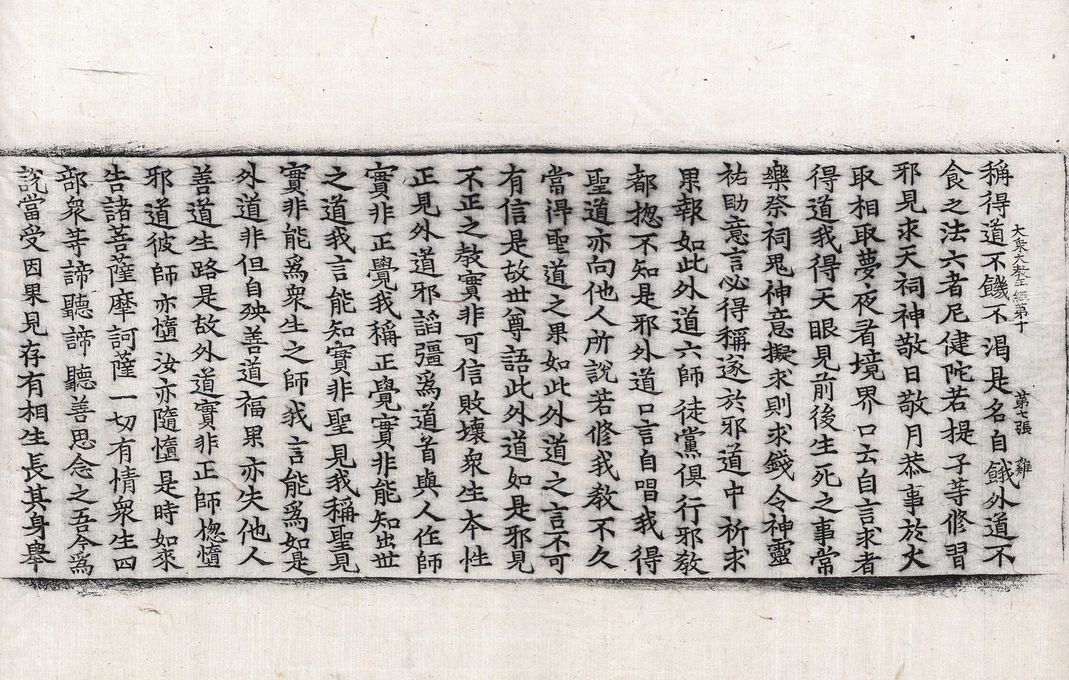 稱得道不饑不渴是名自餓外道不
大乗大教王經第十　第七張　雞
食之法六者尼健陀若提子等修習
邪見求天祠神敬日敬月恭事於火
取相取夢夜看境界口云自言求者
得道我得天眼見前後生死之事常
樂祭祠鬼神意擬求則求錢令神靈
祐助意言必得稱遂於邪道中祈求
果報如此外道六師徒黨俱行邪教
都惣不知是邪外道口言自唱我得
聖道亦向他人所說若修我教不久
當得聖道之果如此外道之言不可
有信是故世尊語此外道如是邪見
不正之教實非可信敗壞衆生本性
正見外道邪謟彊爲道首與人作師
實非正覺我稱正覺實非能知出世
之道我言能知實非聖見我稱聖見
實非能爲衆生之師我言能爲如是
外道非但自殃善道福果亦失他人
善道生路是故外道實非正師惣墮
邪道彼師亦墮汝亦隨墮是時如來
告諸菩薩摩訶薩一切有情衆生四
部衆等諦聽諦聽善思念之吾今爲
說當受因果見存有相生長其身舉